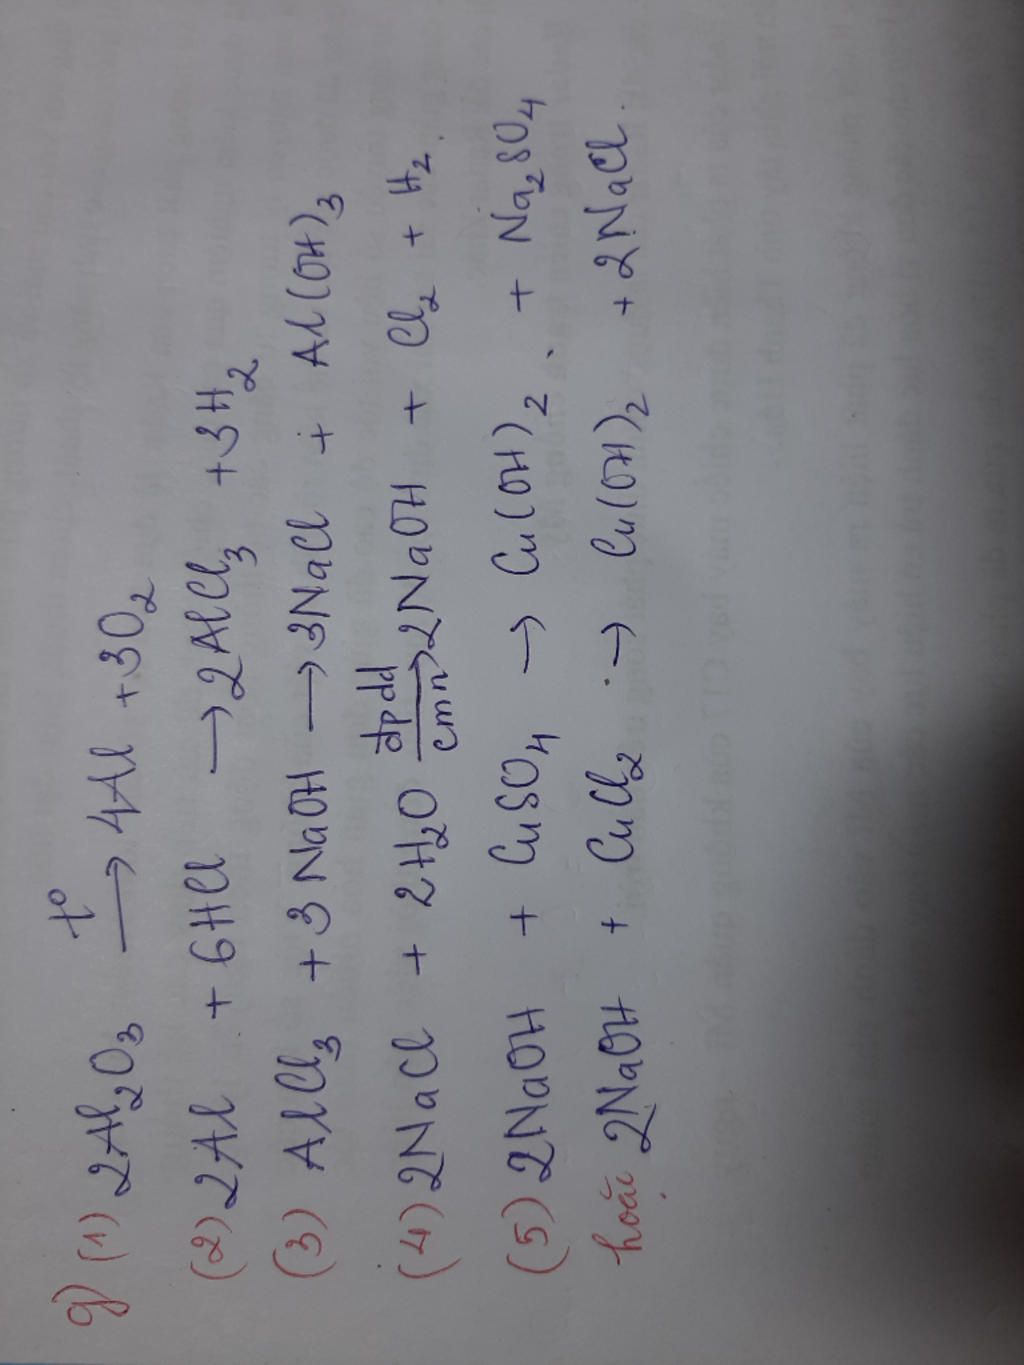 g) (1) 2Al2O3 t° → 4Al + 3O2
(2) 2Al + 6HCl → 2AlCl3 + 3H2
(3) AlCl3 + 3NaOH → 3NaCl + Al(OH)3
(4) 2NaCl + 2H2O đpdd → cmn 2NaOH + Cl2 + H2.
(5) 2NaOH + CuSO4 → Cu(OH)2. + Na2SO4
hoặc 2NaOH + CuCl2 → Cu(OH)2 + 2NaCl.